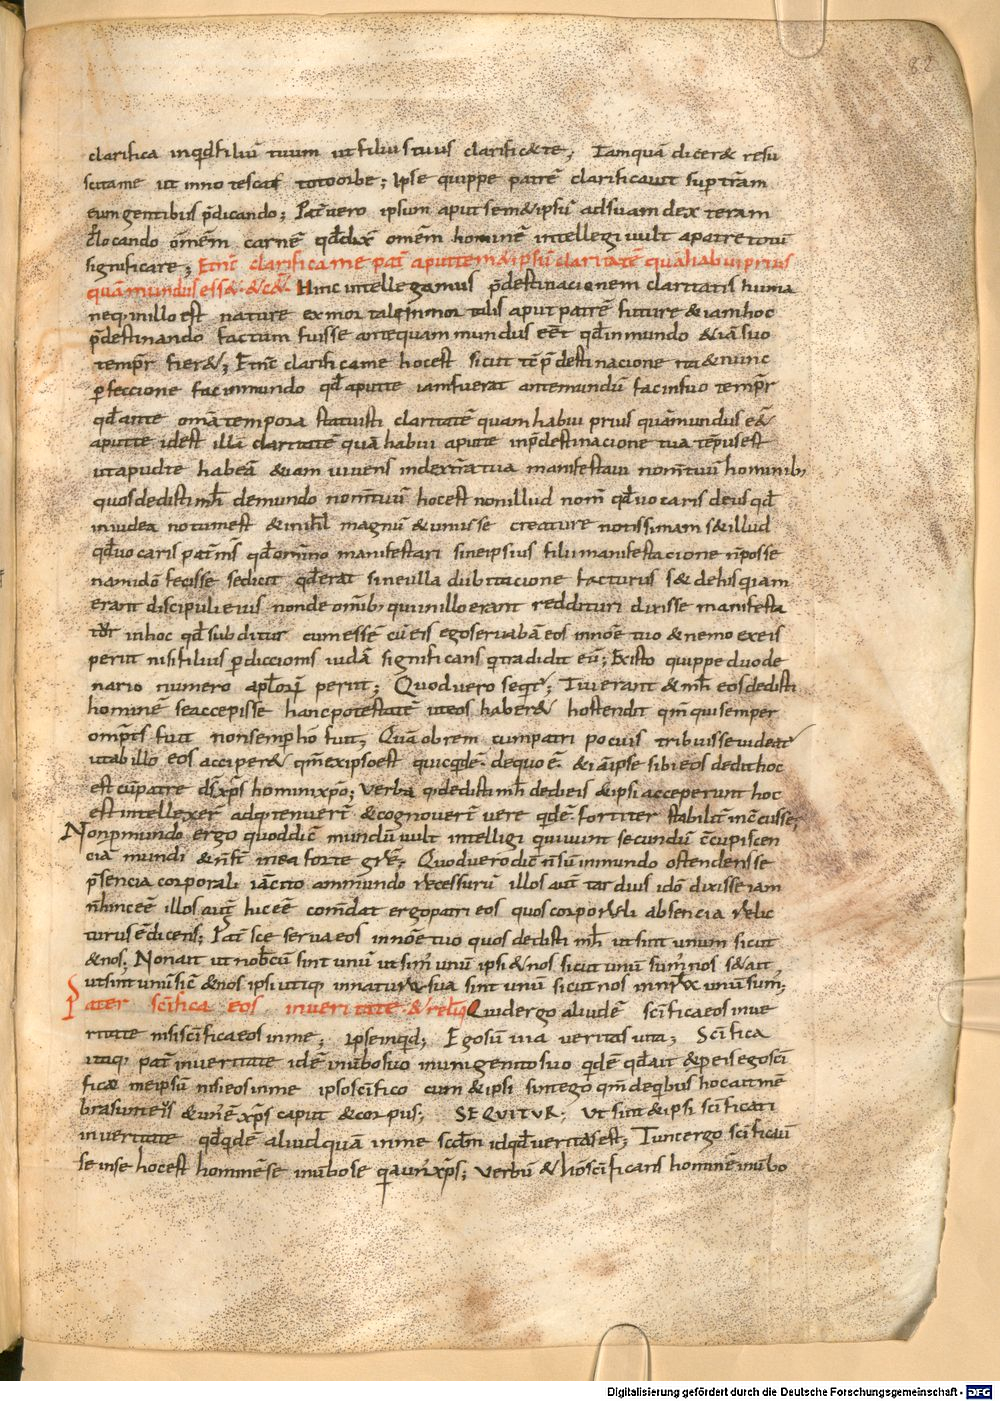 82
clarifica inq̄d filiū tuum ut filius tuus clarific&te; Tamquā dicer& resu
scita me ut innotescat toto orbe; Ipse quippe patrē clarificavit sup tr̄am
eum gentibus p̄dicando; Pat̄ vero ipsum aput sem&ipsū ad suam dexteram
c̄locando om̄em carnē qd̄ dix̄ om̄em hominē intellegi vult a parte totū
significare; Et nc̄ clarifica me pat̄ aput tem&ipsū claritatē quā habui prius
quā mundus ess& &c&. Hinc intellegamus p̄destinacionem claritatis huma
neq; in illo est nature ex mortale inmortalis aput patrē future & iam hoc
p̄destinando factum fuisse antequam mundus eēt qd̄ in mundo & iā suo
tempr̄ fier&; Et nc̄ clarifica me hoc est sicut tc̄ p̄destinacione ita & nunc
p̄feccione fac in mundo qd̄ aput te iam fuerat ante mundū fac in suo tempr̄
qd̄ ante om̄a tempora statuisti claritatē quam habui prius quā mundus e&
aput te id est illā claritatē quā habui aput te in p̄destinacione tua tēpus est
ut apud te habeā &iam vivens in dext̄ra tua manifestavi nom̄ tuū hominib;
quos dedisti mh̄ de mundo nom̄ tuū hoc est non illud nom̄ qd̄ vocaris deus qd̄
in iudea notum est & in isrl̄ magnū & univ̄se creature notissimam s& illud
qd̄ vocaris pat̄ ms̄ qd̄ om̄ino manifestari sine ipsius filii manifestacione n̄ posse
nam idō fecisse se dicit qd̄ erat sine ulla dubitacione facturus s& de his qui iam
erant discipuli eius non de om̄ib; qui in illo erant reddituri dixisse manifesta
in hoc qd̄ subditur cum essē cū eis ego servabā eos in noīe tuo & nemo ex eis
periit nisi filius p̄diccionis iudā significans q̄ tradidit eū; Ex isto quippe duode
nario numero apl̄orū periit; Quod vero seq̄t; Tui erant & mh̄ eos dedisti
hominē se accepisse hanc potestatē ut eos haber& hostendit qm̄ qui semper
om̄pt̄s fuit non semp̄ ho fuit; Quā ob rem cum patri pocius tribuisse videat̄
ut ab illo eos acciper& qm̄ ex ipso est quicq̄d ē. de quo ē. & iā ipse sibi eos dedit hoc
est cū patre ds̄ xp̄s homini xp̄o; Verba q̄ dedisti mh̄ dedi eis & ipsi acceperunt hoc
est intellexer̄ adq; tenuer̄t & cognover̄t vere qd̄ ē. fortiter stabilit̄ inc̄cusse;
Non p̄ mundo ergo quod dic̄ mundū vult intelligi qui vivunt secundū c̄cupiscen
ciā mundi & n̄ st̄ in ea sorte Quod vero dic̄ n̄ sū in mundo ostendens se
p̄sencia corporali iā cito a mundo recessurū illos aut̄ tardius idō dixisse iam
n̄ hinc eē illos aut̄ hic eē com̄dat ergo patri eos quos corporali absencia relic
turus ē dicens; Pat̄ sc̄e serva eos in noīe tuo quos dedisti mh̄ ut sint unum sicut
& nos; Non ait ut nob̄cū sint unū ut sim̄ unū ipsi & nos sicut unū sum̄ nos s& ait
ut sint unū sic̄ & nos ipsi utiq; in natura sua sint unū sicut nos in nr̄a unū sum̄;
Pater sc̄ifica eos in veritate & reliq̄ Quid ergo aliud ē sc̄ifica eos in ve
ritate nisi sc̄ifica eos in me; ipse inq̄d; Ego sū via veritas vita; Sc̄ifica
itaq; pat̄ in veritate id ē in v̄bo suo in unigenito suo qd̄ ē qd̄ ait & p̄ eis ego sc̄i
fico me ipsū nisi eos in me ipso sc̄ifico cum & ipsi sint ego qm̄ de q̄bus hoc ait mē
bra sunt eius & un̄ ē xp̄s caput & corpus; SEQUITUR; Ut sint & ipsi sc̄ificati
in veritate qd̄ qd̄ ē aliud quā in me scdm̄ id qd̄ veritas est; Tunc ergo sc̄ificavi
se in se hoc est hominē se in v̄bo se q̄a un̄ xp̄s; Verbū & ho sc̄ificans hominē in v̄bo
Digitalisierung gefördert durch die Deutsche Forschungsgemeinschaft - DFG